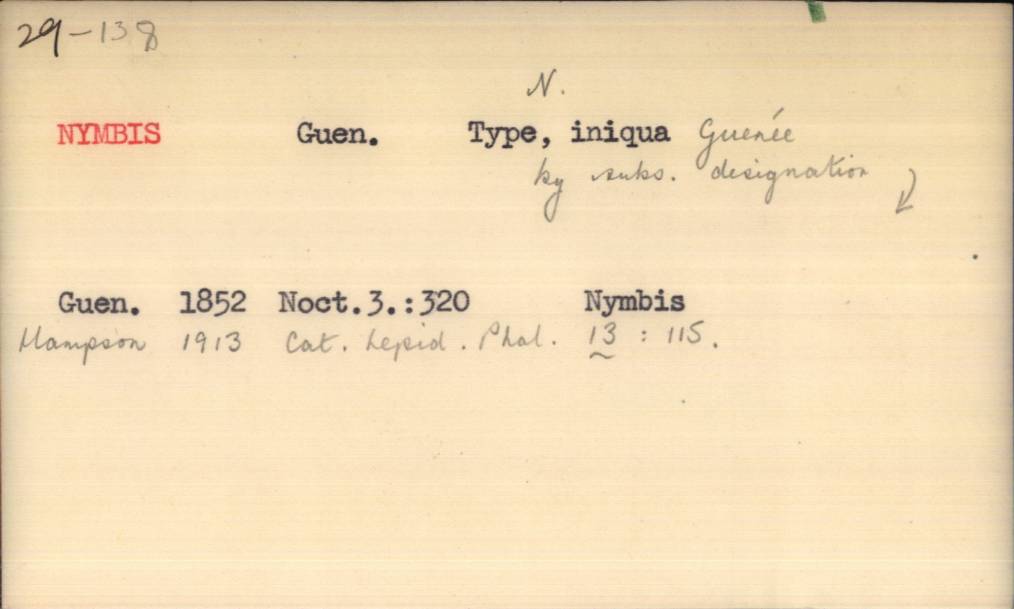 29-138
N.
NYMBIS Guen. Type, iniqua Guenée
by subs. designation
Guen. 1852 Noct.3.:320 Nymbis
Hampson 1913 Cat. Lepid. Phal. 13 : 115.